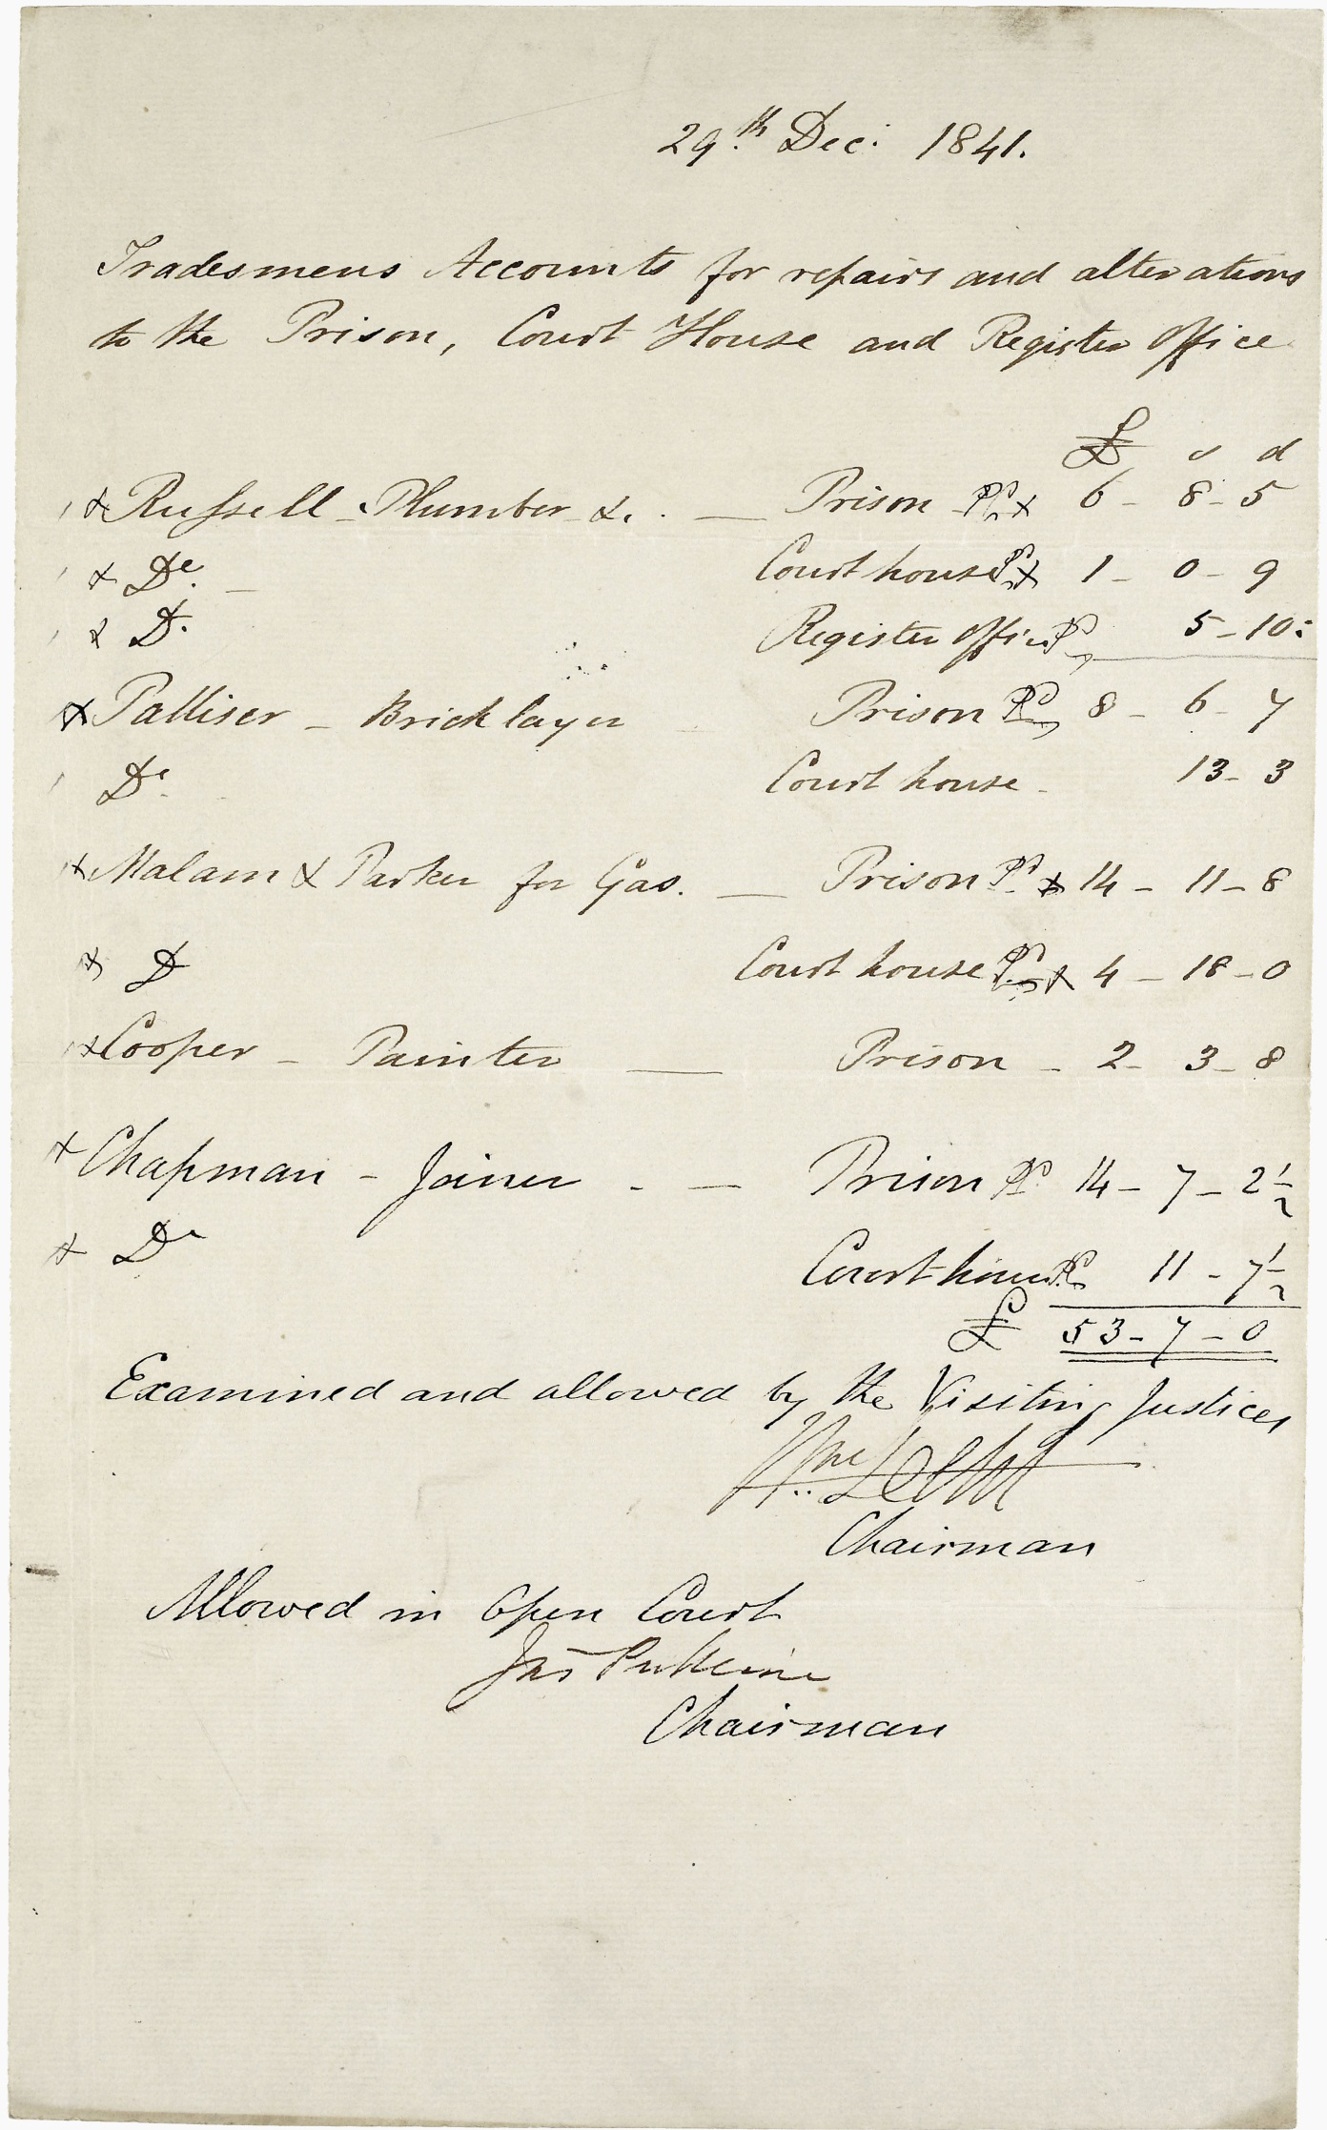 29th Dec: 1841.
Tradesmens Accounts for repairs and alterations
to the Prison, Court House and Register Office
£ s d
x Russell - Plumber &c. — Prison Pd x 6 - 8 - 5
x Do. — Court house Pd x 1 - 0 - 9
x Do. Register Office Pd 5 - 10
x Palliser - Bricklayer Prison Pd 8 - 6 - 7
Do. Court house - 13 - 3
x Malam & Parker for Gas. — Prison Pd x 14 - 11 - 8
x Do Court house Pd x 4 - 18 - 0
x Cooper - Painter — Prison - 2 - 3 - 8
x Chapman - Joiner - — Prison Pd 14 - 7 - 2½
x Do Court house Pd 11 - 7½
£ 53 - 7 - 0
Examined and allowed by the Visiting Justices
Chairman
Allowed in Open Court
Jas Pulleine
Chairman